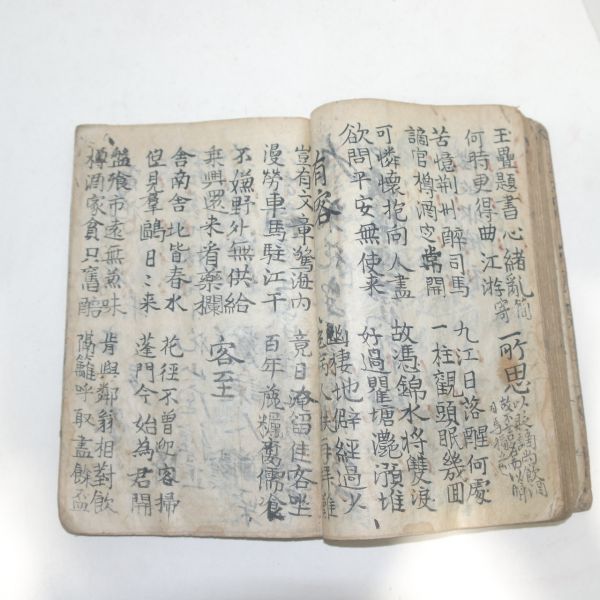 玉壘題書心緒亂
何時更得曲江游
所思
苦憶荊州醉司馬 九江日落醒何處
謫官樽酒定常開 一柱觀頭眠幾回
可憐懷抱向人盡 故憑錦水將雙淚
欲問平安無使來 好過瞿塘灩澦堆
有客 幽棲地僻經過少
老病人扶再拜難
豈有文章驚海內 竟日淹留佳客坐
漫勞車馬駐江干 百年麁糲腐儒飡
不嫌野外無供給
乘興還来看藥欄 客至
舍南舍北皆春水 花徑不曾迎客掃
但見羣鷗日日来 蓬門今始為君開
盤飱市遠無兼味 肯與鄰翁相對飲
樽酒家貧只舊醅 隔籬呼取盡餘盃